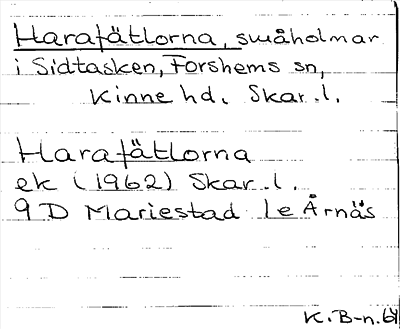 Harafätlorna, småholmar
i Sidtasken, Forshems sn,
Kinne hd. Skar.l.
Harafätlorna
ek (1962) Skar.l.
9 D Mariestad le Årnäs
K.B-n.64